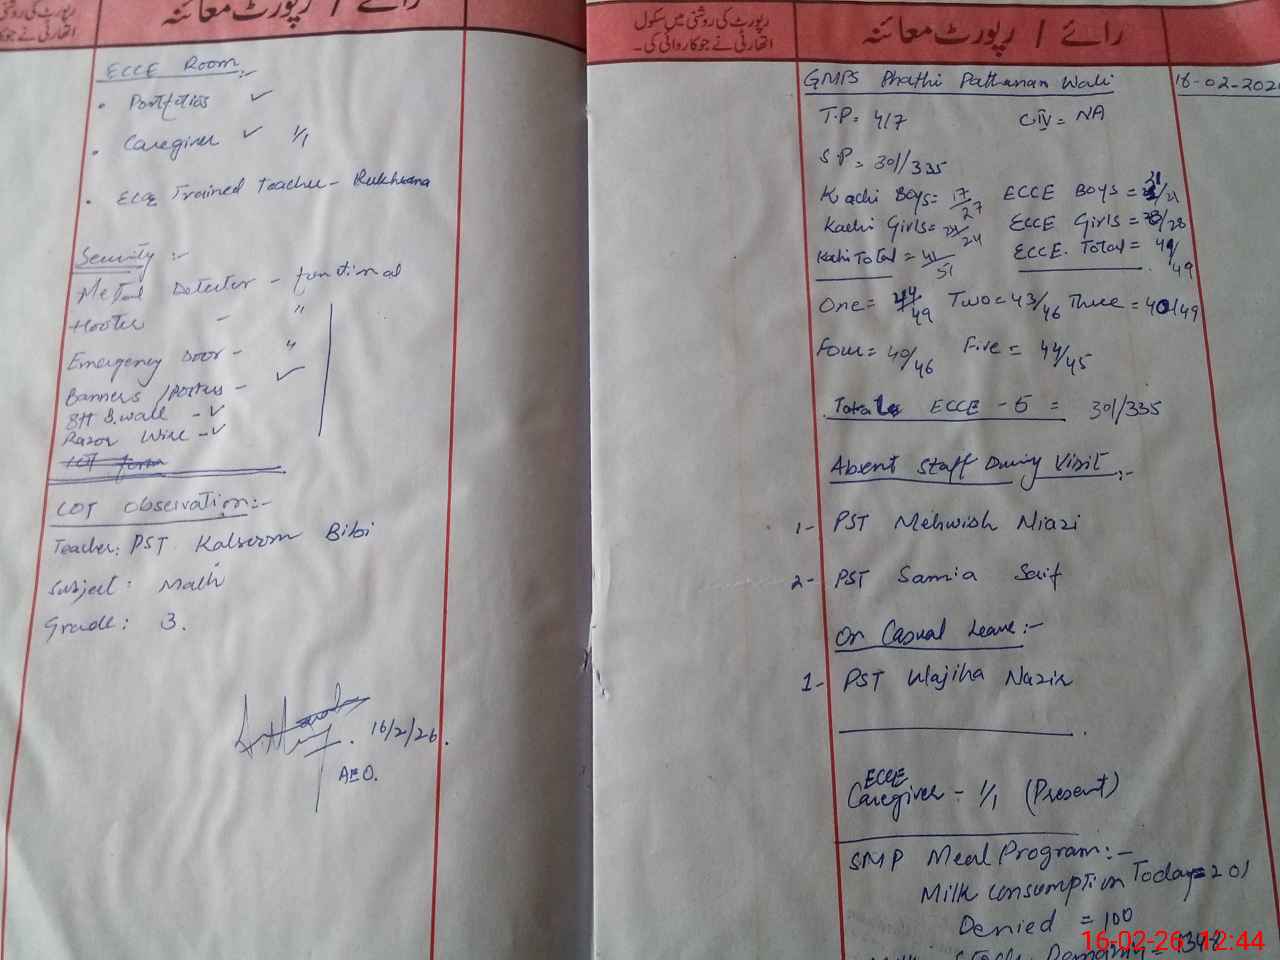 رپورٹ کی روشنی
اتھارٹی نے جو کا
رائے / رپورٹ معائنہ
ECCE Room:-
• Portfolios ✓
• Caregiver ✓ 1/1
• ECCE Trained Teacher - Rukhsana
Security :-
Metal Detector - functional
Hooter - "
Emergency Door - "
Banners / Posters - ✓
8ft B.wall - ✓
Razor Wire - ✓
COT Observation:-
Teacher: PST Kalsoom Bibi
Subject: Math
Grade: 3.
16/2/26.
AEO.
رپورٹ کی روشنی میں سکول
اتھارٹی نے جو کاروائی کی۔
رائے / رپورٹ معائنہ
GMPS Bhathi Pathanan Wali 16-02-202
T.P = 4/7 C.IV = NA
S.P = 301/335
Kachi Boys = 17/27 ECCE Boys = 21/21
Kachi Girls = 24/24 ECCE Girls = 28/28
Kachi Total = 41/51 ECCE Total = 49/49
One = 44/49 Two = 43/46 Three = 40/49
Four = 40/46 Five = 44/45
Total ECCE - 5 = 301/335
Absent Staff During Visit :-
1- PST Mehwish Niazi
2- PST Samia Saif
On Casual Leave :-
1- PST Wajiha Nazir
ECCE
Caregiver - 1/1 (Present)
SMP Meal Program :-
Milk Consumption Today = 201
Denied = 100
16-02-26 12:44